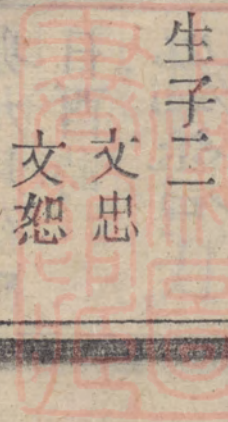 生子二
文忠
文恕